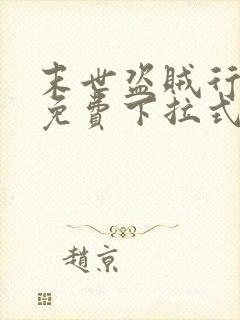 末世盗贼行
免費下拉式
趙京